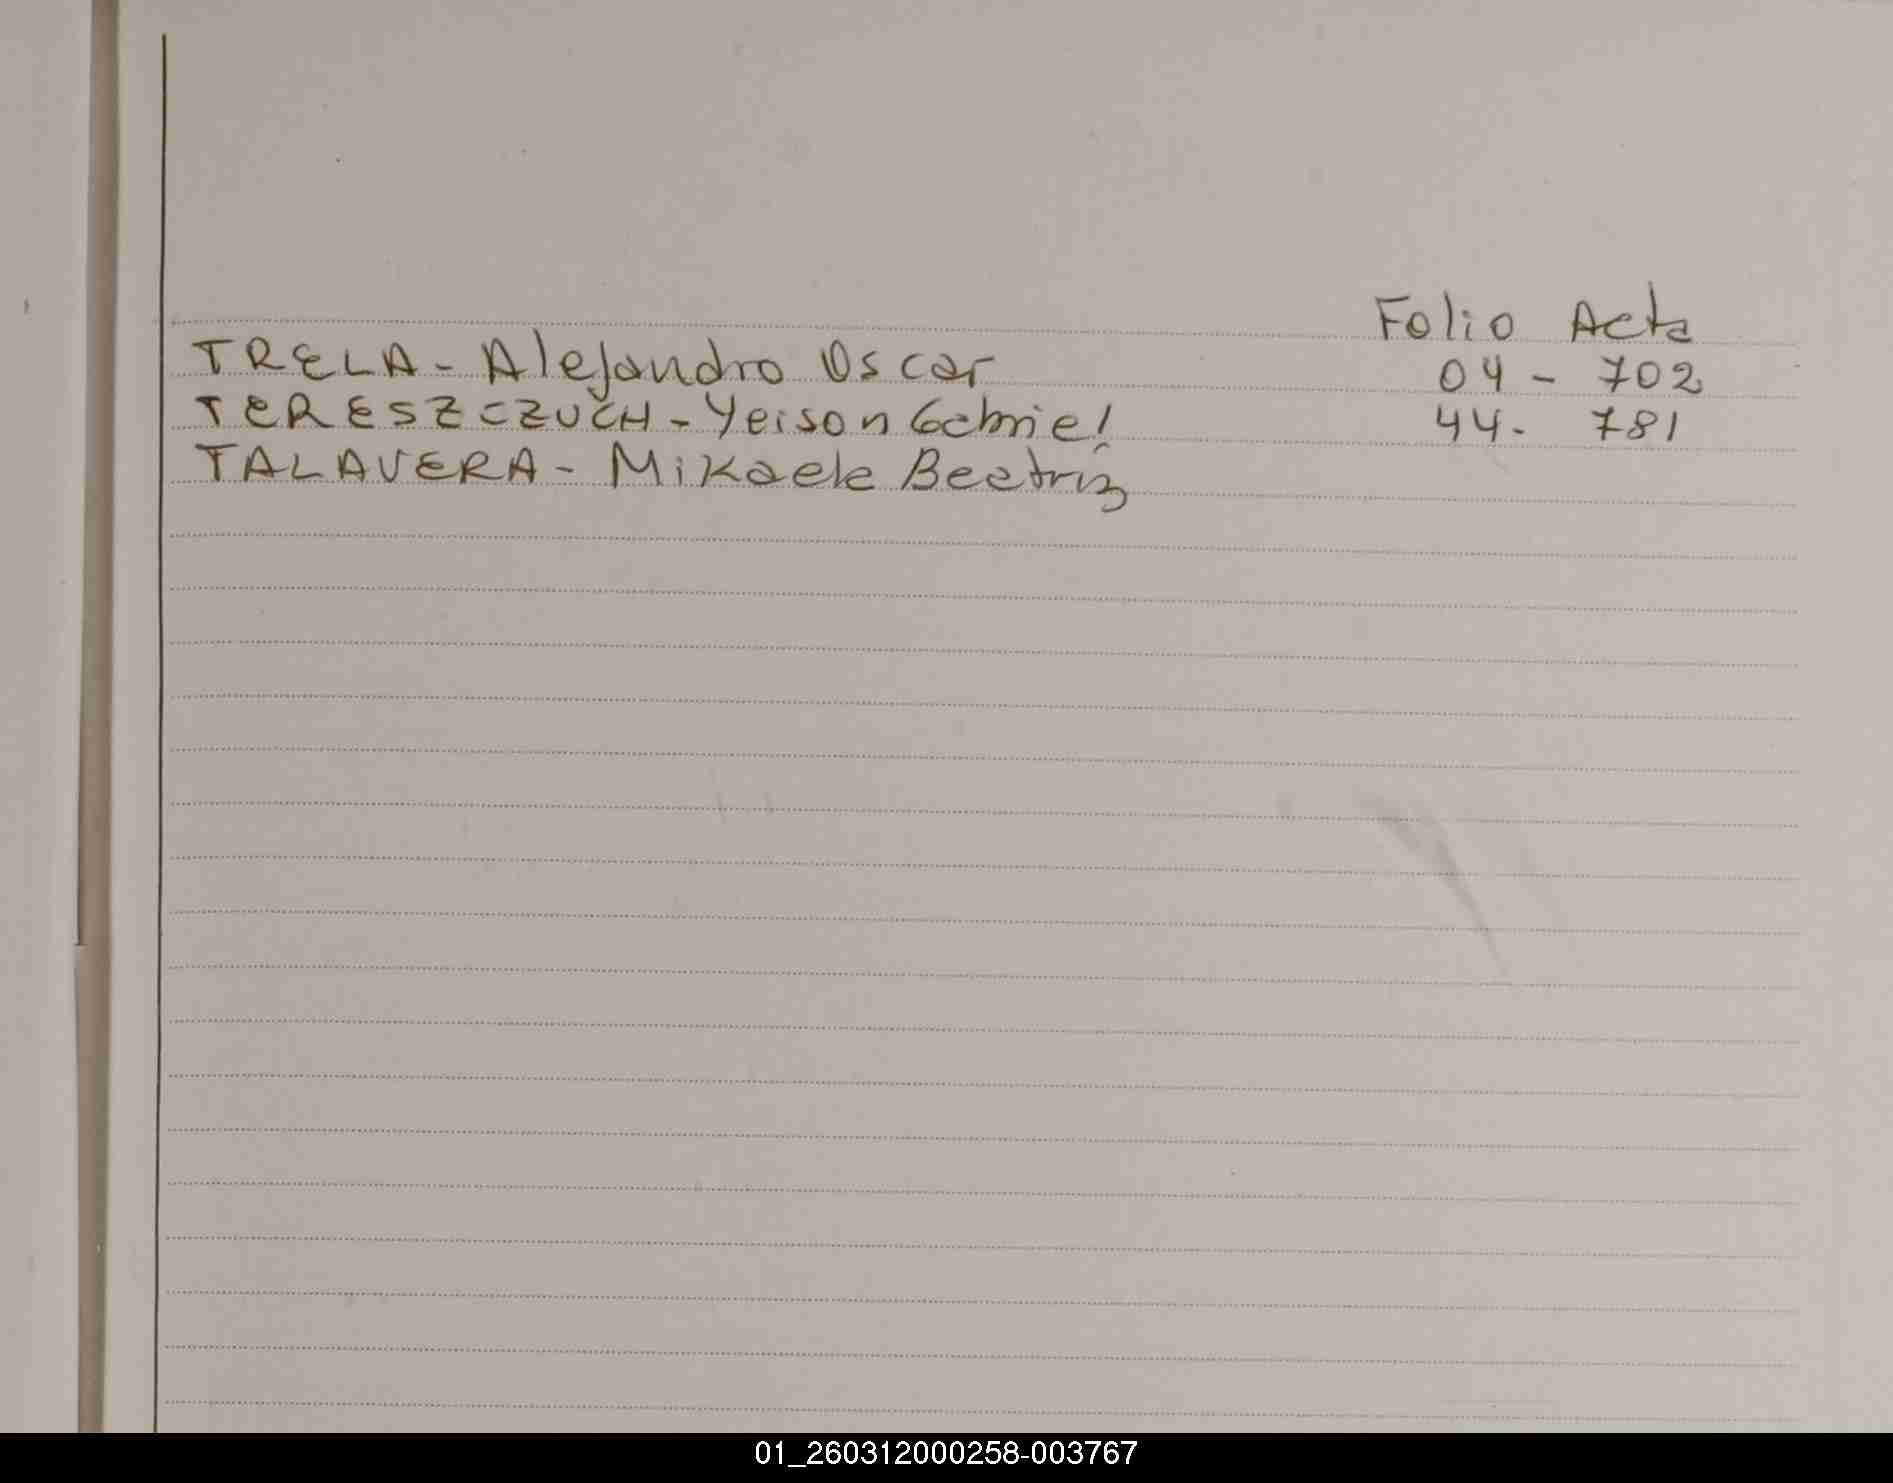 Folio Acta
TRELA - Alejandro Oscar 04 - 702
TERESZCZUCH - Yeison Gabriel 44 - 781
TALAVERA - Mikaela Beatriz
01_260312000258-003767